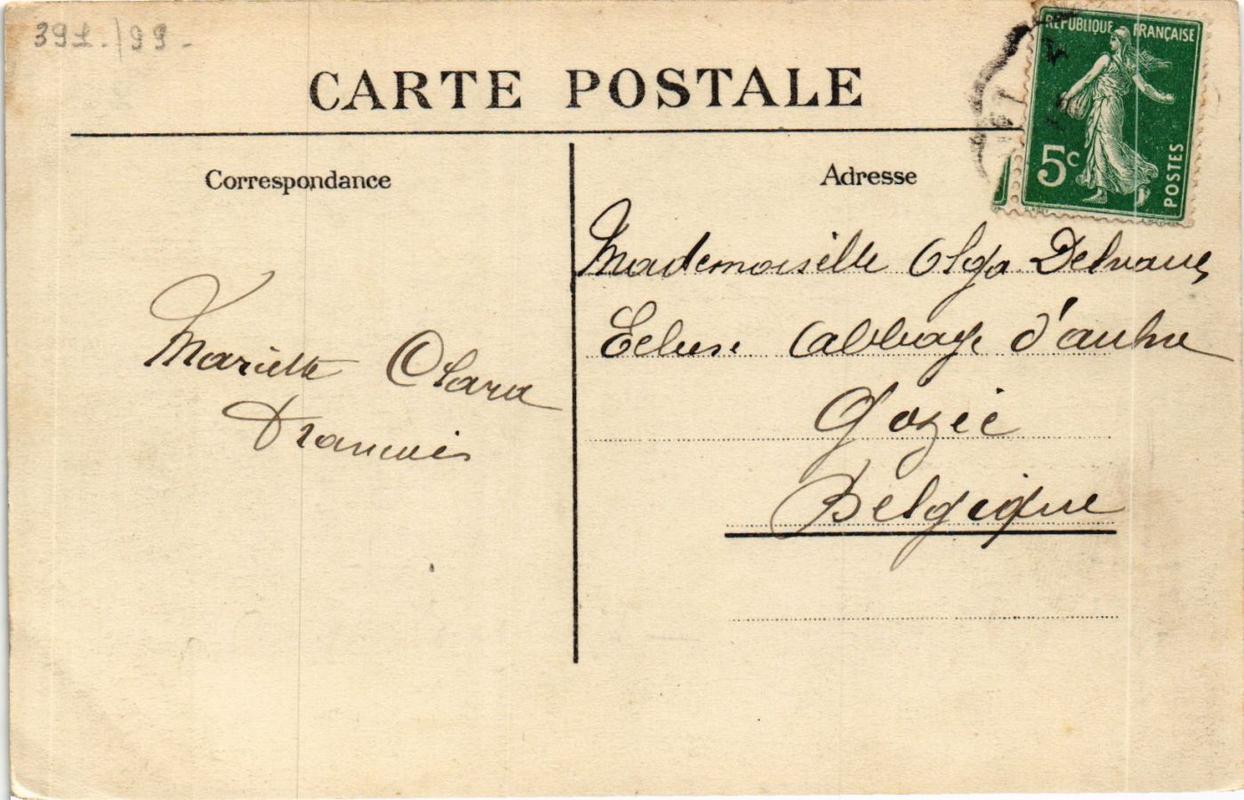 391./99.
CARTE POSTALE
RÉPUBLIQUE FRANÇAISE
5c
POSTES
Correspondance
Mariette Clara
Francois
Adresse
Mademoiselle Olga Delvaux
Ecluse Abbaye d'aulne
Gozée
Belgique